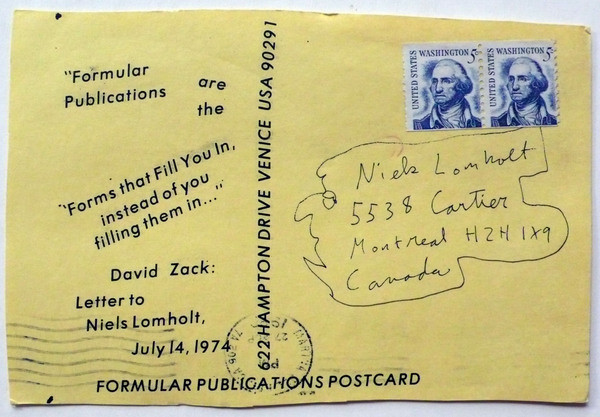 "Formular
Publications are
the
"Forms that Fill You In,
instead of you
filling them in..."
David Zack:
Letter to
Niels Lomholt,
July 14, 1974
FORMULAR PUBLICATIONS POSTCARD
622 HAMPTON DRIVE VENICE USA 90291
UNITED STATES
WASHINGTON 5¢
UNITED STATES
WASHINGTON 5¢
Niels Lomholt
5538 Cartier
Montreal H2H 1X9
Canada